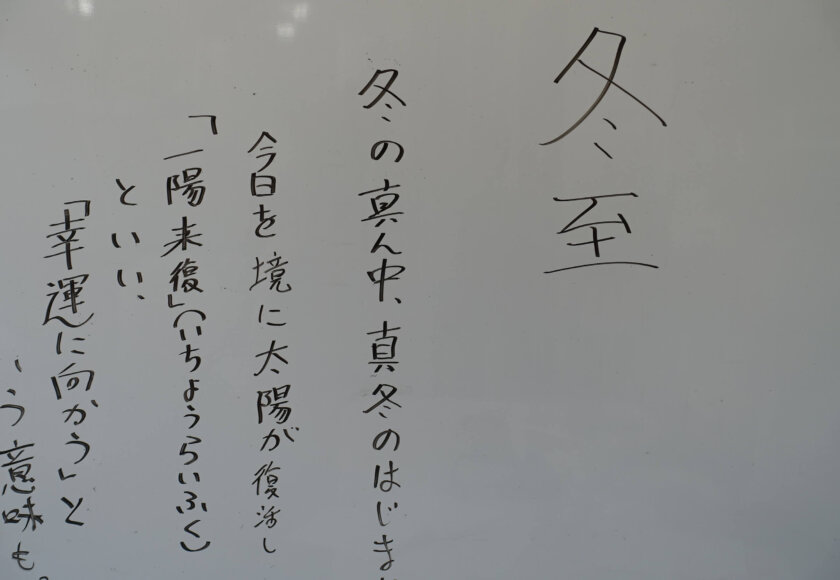 冬至
冬の真ん中、真冬のはじま
今日を境に太陽が復活し
「一陽来復」(いちようらいふく)
といい、
「幸運に向かう」と
いう意味も。